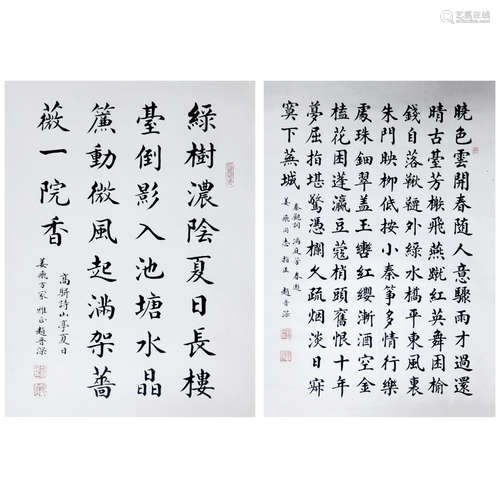 艺狐在线
綠樹濃陰夏日長樓
臺倒影入池塘水晶
簾動微風起滿架薔
薇一院香
高駢詩山亭夏日
方家雅正趙
曉色雲開春隨人意驟雨才過還
晴古臺芳榭飛燕蹴紅英舞困榆
錢自落鞦韆外綠水橋平東風裏
朱門映柳低按小秦箏多情行樂
處珠鈿翠蓋玉轡紅纓漸酒空金
榼花困蓬瀛豆蔻梢頭舊恨十年
夢屈指堪驚憑欄久疏烟淡日寂
寞下蕪城
秦觀詞滿庭芳春遊
同志指正趙